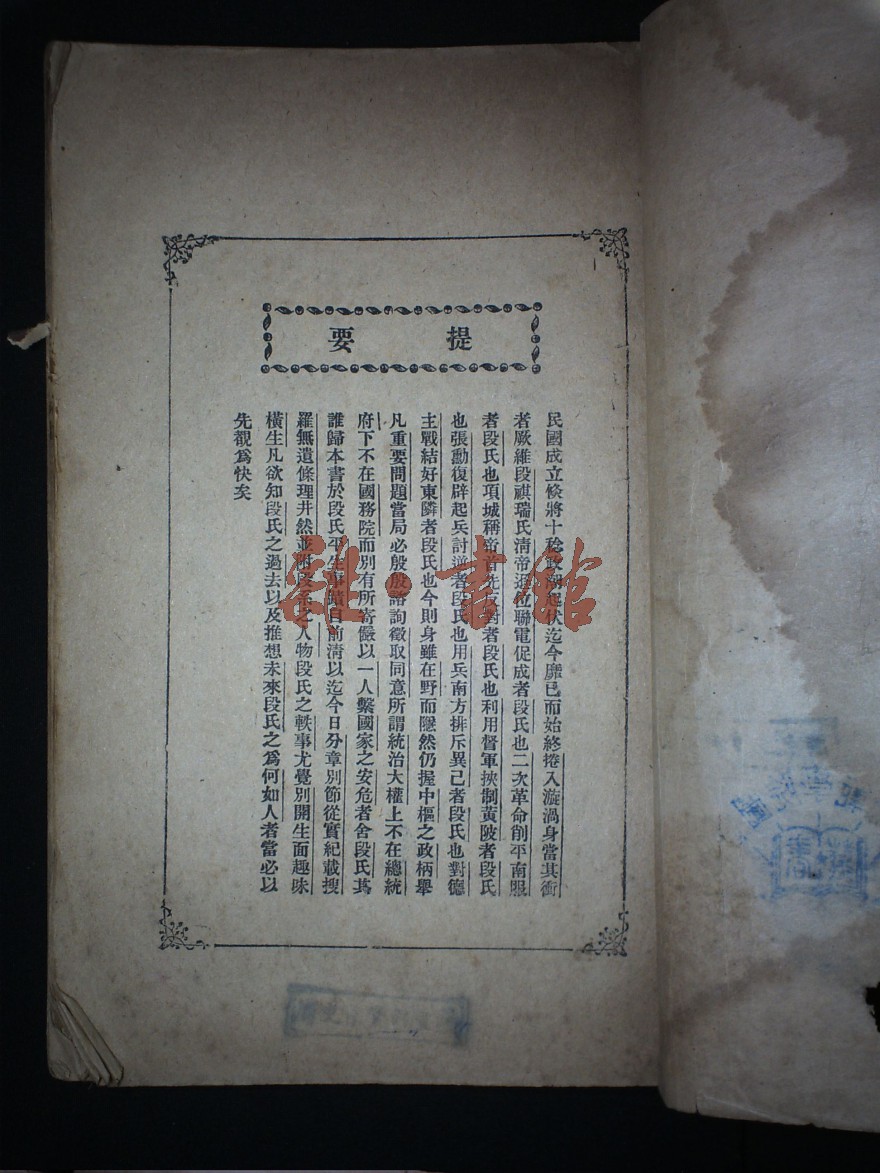 提要
民國成立倐將十稔政潮起伏迄今靡已而始終捲入漩渦身當其衝
者厥維段祺瑞氏清帝退位聯電促成者段氏也二次革命削平南服
者段氏也項城稱帝首先反對者段氏也利用督軍挾制黃陂者段氏
也張勳復辟起兵討逆者段氏也用兵南方排斥異己者段氏也對德
主戰結好東隣者段氏也今則身雖在野而隱然仍握中樞之政柄舉
凡重要問題當局必殷殷諮詢徵取同意所謂統治大權上不在總統
府下不在國務院而別有所寄儼以一人繫國家之安危者舍段氏其
誰歸本書於段氏平生事蹟自前清以迄今日分章別節從實紀載搜
羅無遺條理井然並附段系之人物段氏之軼事尤覺別開生面趣味
橫生凡欲知段氏之過去以及推想未來段氏之爲何如人者當必以
先覩爲快矣
雜·書館